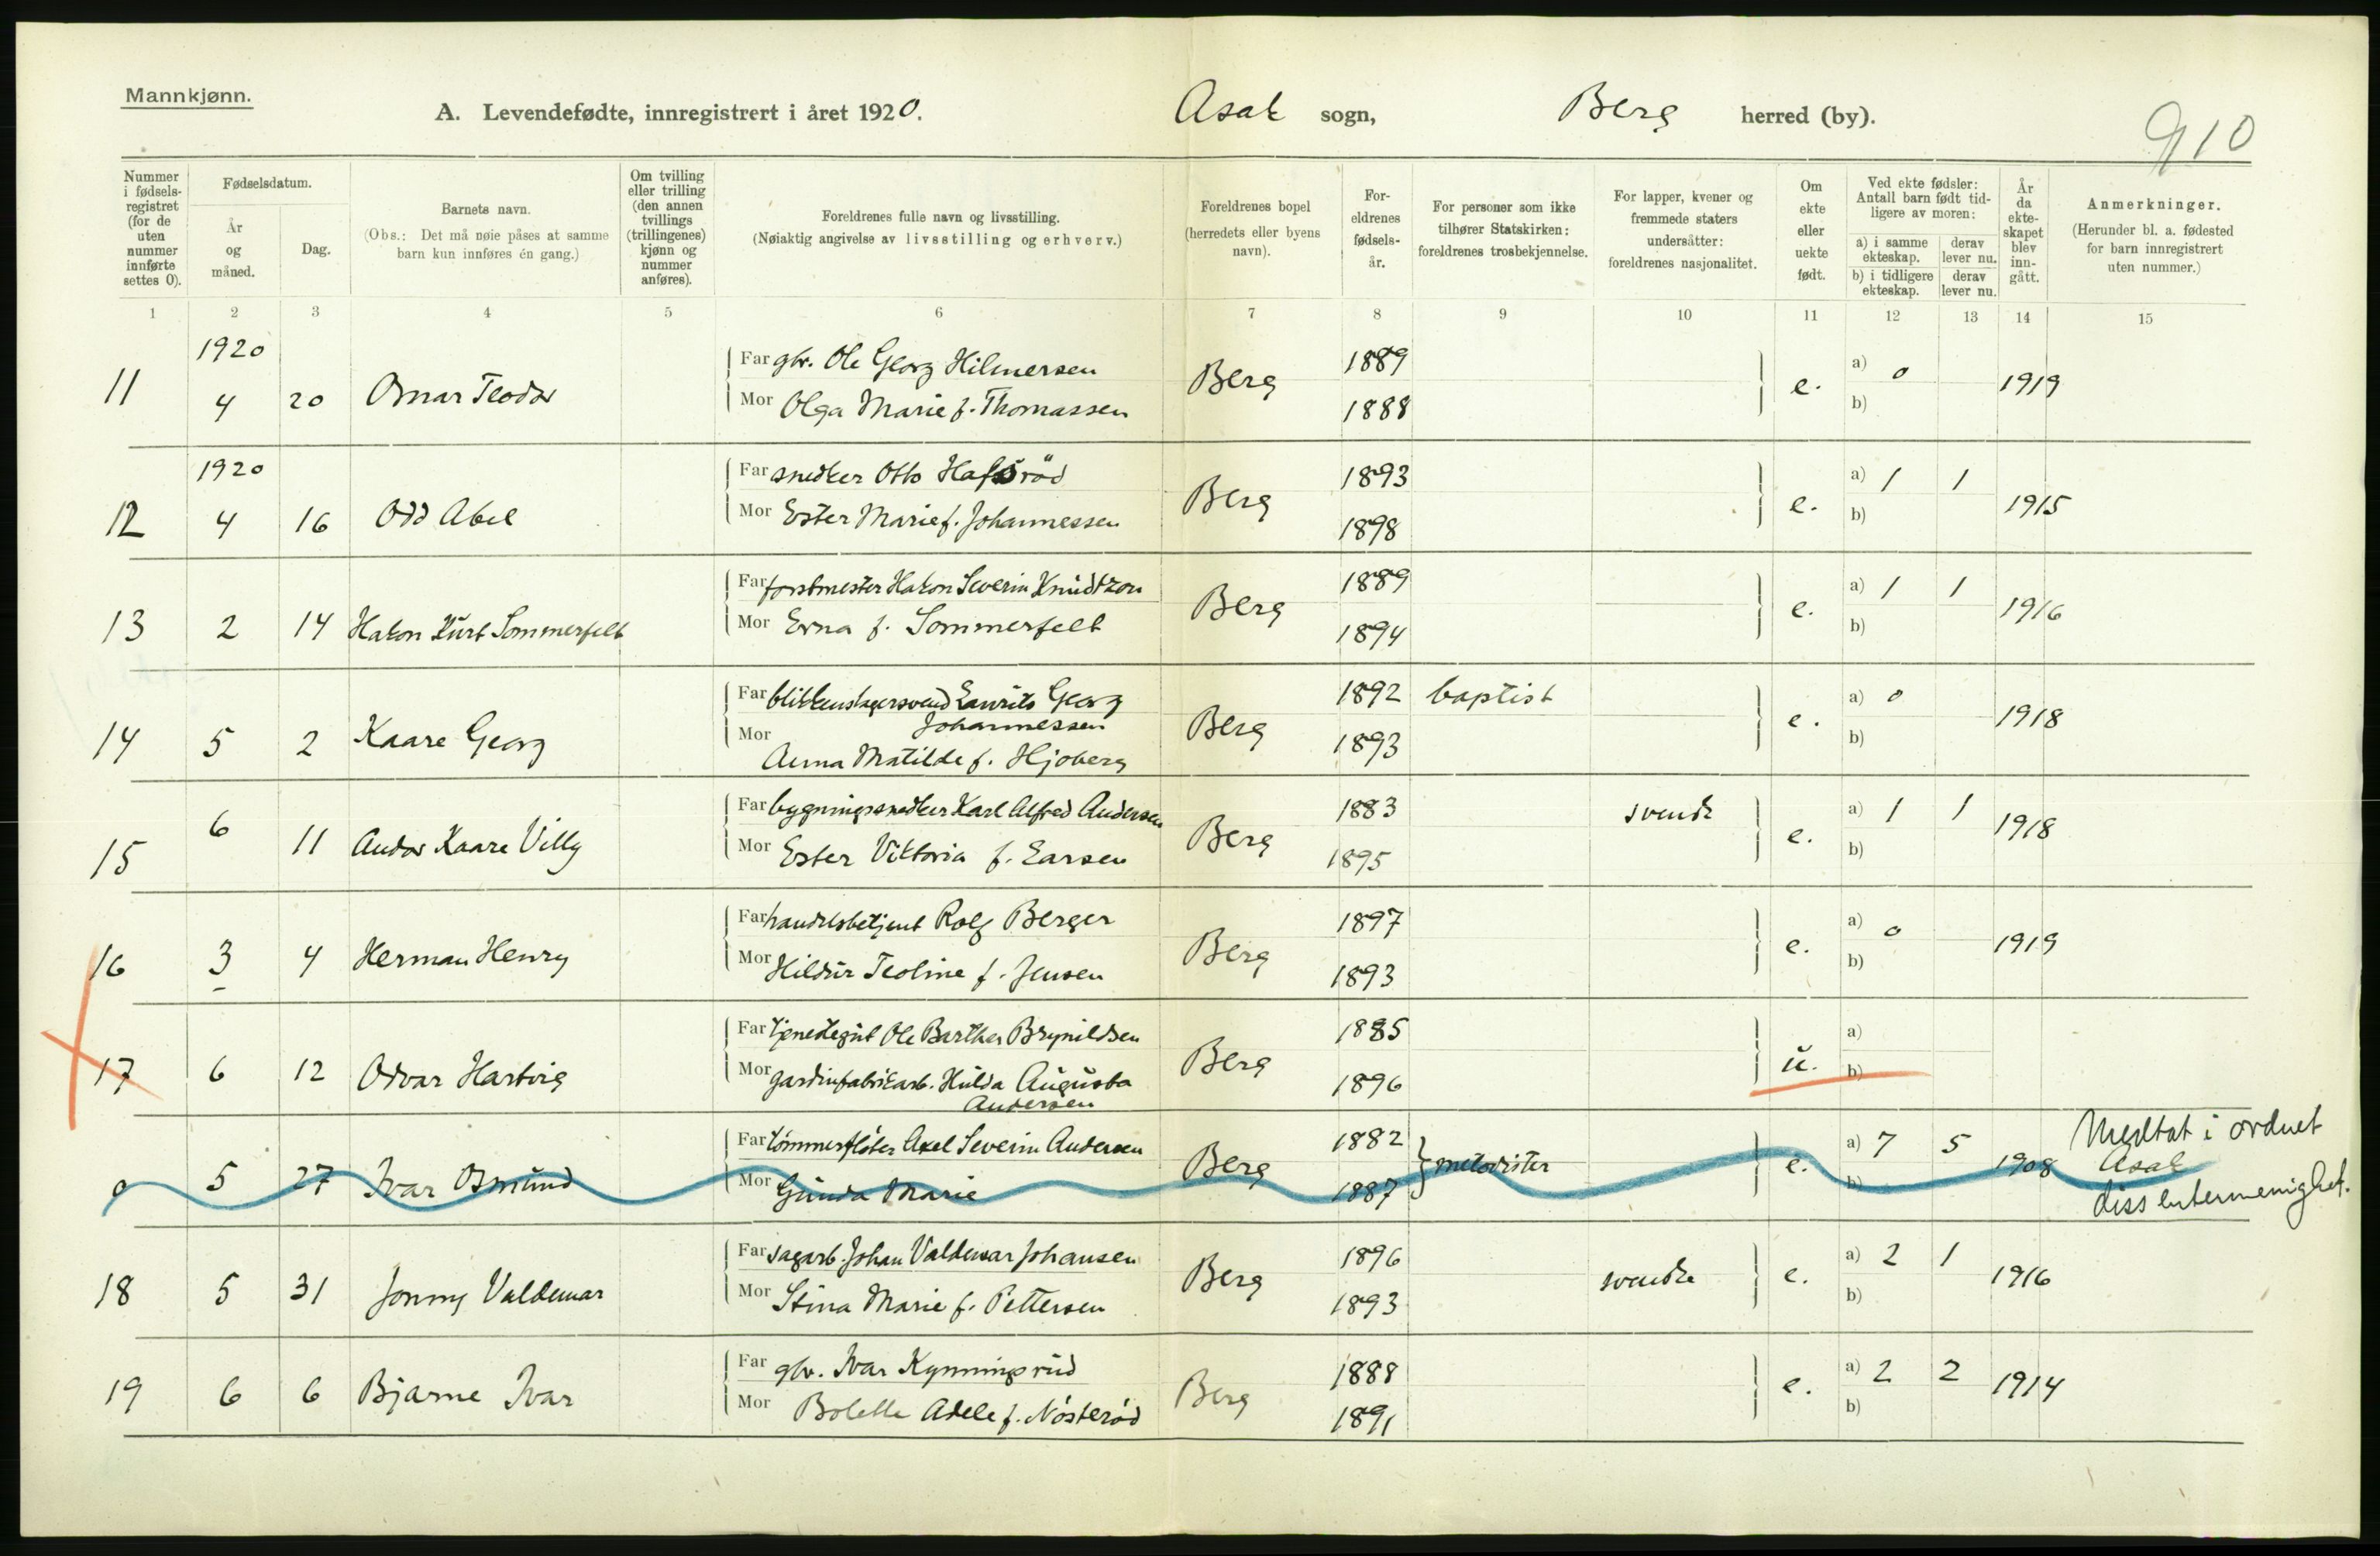 Mannkjønn.
A. Levendefødte, innregistrert i året 1920. Asak sogn, Berg herred (by).
910
Nummer i fødsels-registret (for de uten nummer innførte settes 0).
Fødselsdatum.
År og måned.
Dag.
Barnets navn.
(Obs.: Det må nøie påses at samme barn kun innføres én gang.)
Om tvilling eller trilling (den annen tvillings (trillingenes) kjønn og nummer anføres).
Foreldrenes fulle navn og livsstilling.
(Nøiaktig angivelse av livsstilling og erhverv.)
Foreldrenes bopel (herredets eller byens navn).
For-eldrenes fødsels-år.
For personer som ikke tilhører Statskirken: foreldrenes trosbekjennelse.
For lapper, kvener og fremmede staters undersåtter: foreldrenes nasjonalitet.
Om ekte eller uekte født.
Ved ekte fødsler: Antall barn født tid-ligere av moren:
a) i samme ekteskap.
derav lever nu.
b) i tidligere ekteskap.
derav lever nu.
År da ekte-skapet blev inn-gått.
Anmerkninger.
(Herunder bl. a. fødested for barn innregistrert uten nummer.)
1 2 3 4 5 6 7 8 9 10 11 12 13 14 15
1920
Far gbr. Ole Georg Hilmersen 1889
11 4 20 Osnar Teodor Berg e. a) 0 1919
Mor Olga Marie f. Thomassen 1888 b)
1920
Far snedker Otto Hafsröd 1893 a) 1 1
12 4 16 Odd Abel Berg e. 1915
Mor Ester Marie f. Johannessen 1898 b)
Far forstmester Hakon Severin Knudtzon 1889 a) 1 1
13 2 14 Hakon Kurt Sommerfelt Berg e. 1916
Mor Erna f. Sommerfelt 1894 b)
Far blikkenslagersvend Laurits Georg 1892 baptist a) 0
Johannessen
14 5 2 Kaare Georg Berg e. 1918
Mor Anna Matilde f. Hjoberg 1893 b)
Far bygningssnedker Karl Alfred Andersen 1883 svensk a) 1 1
15 6 11 Andor Kaare Villy Berg e. 1918
Mor Ester Viktoria f. Larsen 1895 b)
Far handelsbetjent Rolf Berger 1897 a) 0
16 3 4 Herman Henry Berg e. 1919
Mor Hildur Teoline f. Jensen 1893 b)
Far tjenestegut Ole Barthas Brynildsen 1885 a)
17 6 12 Odvar Hartvig Berg u.
Mor gardinfabrikarb. Hulda Augusta 1896 b)
Andersen
Far tømmerfløter Axel Severin Andersen 1882 a) 7 5 Medtat i ordnet
0 5 27 Ivar Osmund Berg metodister e. 1908 Asak
Mor Gunda Marie 1887 b) dissentermenighet.
Far sagarb. Johan Valdemar Johansen 1896 a) 2 1
18 5 31 Jonny Valdemar Berg svenske e. 1916
Mor Stina Marie f. Pettersen 1893 b)
Far gbr. Ivar Kynningsrud 1888 a) 2 2
19 6 6 Bjarne Ivar Berg e. 1914
Mor Bolette Adele f. Nösteröd 1891 b)